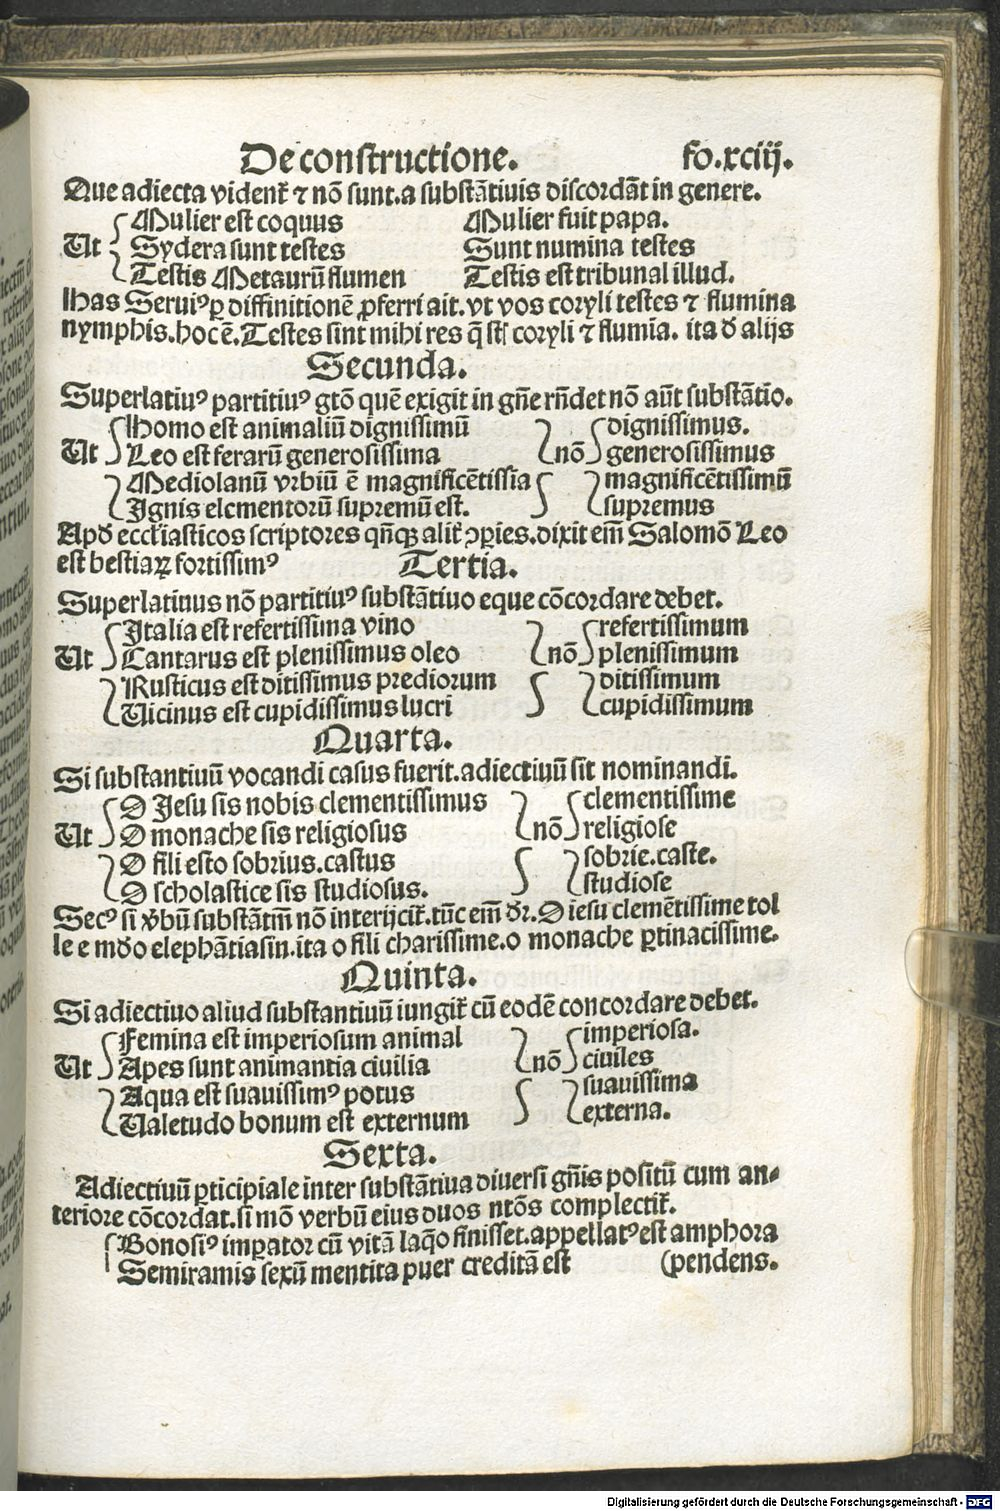 De constructione. fo.xciij.
Que adiecta vident̃ ⁊ nõ sunt.a substãtiuis discordãt in genere.
Mulier est coquus Mulier fuit papa.
Ut Sydera sunt testes Sunt numina testes
Testis Metaurũ flumen Testis est tribunal illud.
Has Seruiꝰ ꝑ diffinitionẽ ꝓferri ait. vt vos coryli testes ⁊ flumina
nymphis.hoc ẽ.Testes sint mihi res q̃ st̃ coryli ⁊ flumĩa. ita đ alijs
Secunda.
Superlatiuꝰ partitiuꝰ gtõ quẽ exigit in gñe rñdet nõ aũt substãtio.
Homo est animaliũ dignissimũ dignissimus.
Ut Leo est ferarũ generosissima nõ generosissimus
Mediolanũ vrbiũ ẽ magnificẽtissia magnificẽtissimũ
Ignis elementorũ supremũ est. supremus
Apđ eccl̃iasticos scriptores qñqꝫ alit̃ ꝯꝑies.dixit em̃ Salomõ Leo
est bestiaꝝ fortissimꝰ Tertia.
Superlatiuus nõ partitiuꝰ substãtiuo eque cõcordare debet.
Italia est refertissima vino refertissimum
Ut Cantarus est plenissimus oleo nõ plenissimum
Rusticus est ditissimus prediorum ditissimum
Uicinus est cupidissimus lucri cupidissimum
Quarta.
Si substantiuũ vocandi casus fuerit.adiectiuũ sit nominandi.
O Jesu sis nobis clementissimus clementissime
Ut O monache sis religiosus nõ religiose
O fili esto sobrius.castus sobrie.caste.
O scholastice sis studiosus. studiose
Secꝰ si v̓bũ substãtiũ nõ interijcit̃.tũc em̃ dr̃.O iesu clemẽtissime tol
le e mđo elephãtiasin.ita o fili charissime.o monache ꝑtinacissime.
Quinta.
Si adiectiuo aliud substantiuũ iungit̃ cũ eodẽ concordare debet.
Femina est imperiosum animal imperiosa.
Ut Apes sunt animantia ciuilia nõ ciuiles
Aqua est suauissimꝰ potus suauissima
Ualetudo bonum est externum externa.
Sexta.
Adiectiuũ ꝑticipiale inter substãtiua diuersi gñis positũ cum an⸗
teriore cõcordat.si mõ verbũ eius duos ntõs complectit̃.
Bonosiꝰ imꝑator cũ vitã laq̃o finisset.appellatꝰ est amphora
Semiramis sexũ mentita puer creditã est (pendens.
Digitalisierung gefördert durch die Deutsche Forschungsgemeinschaft - DFG